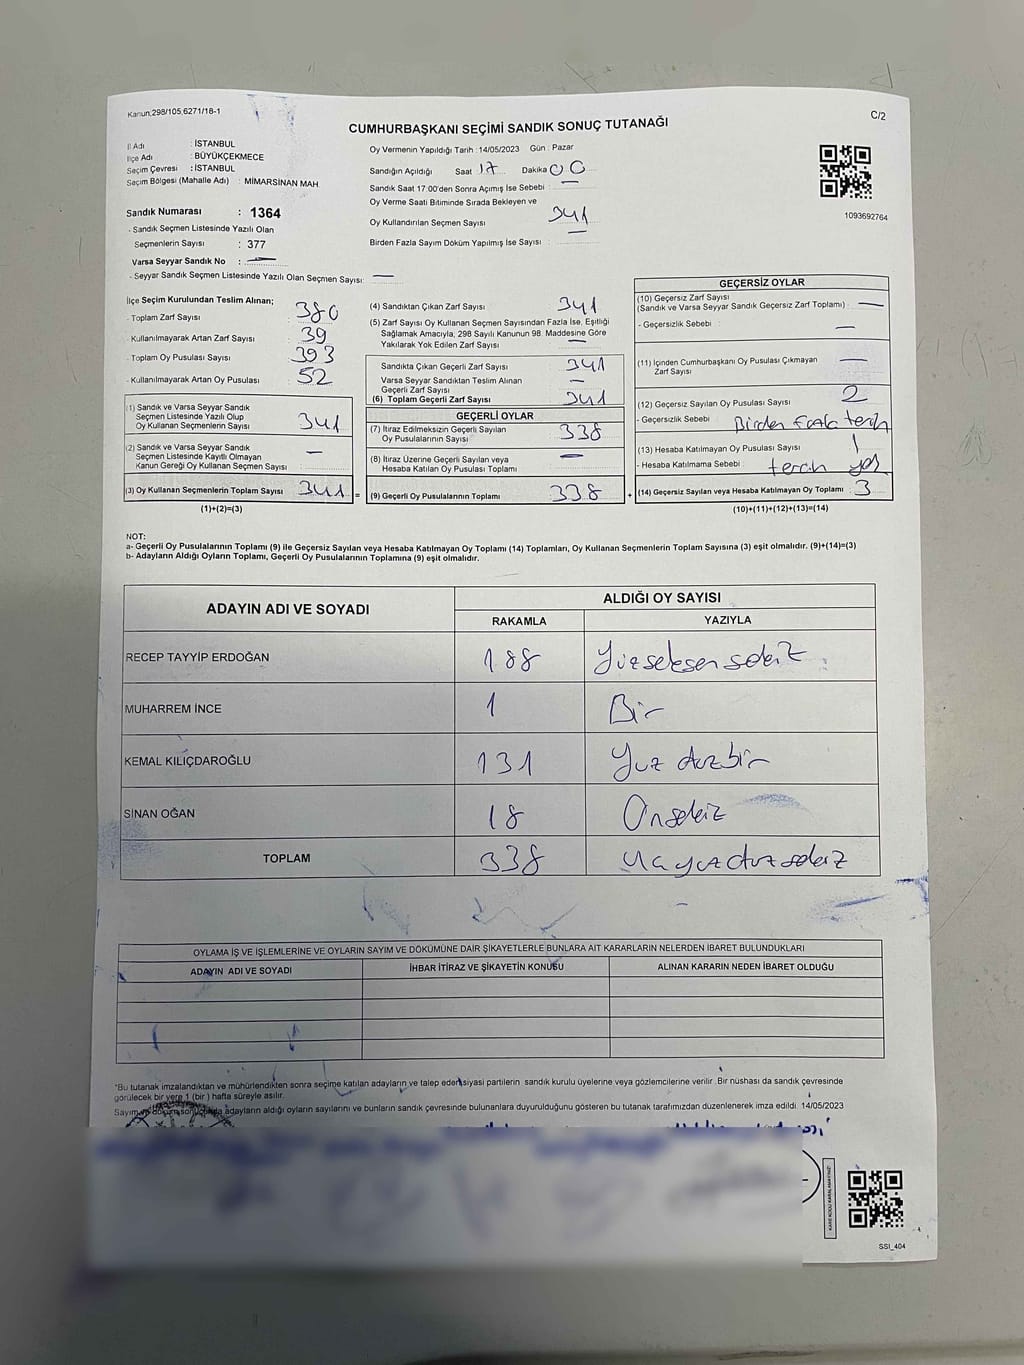 Kanun;298/105,6271/18-1
C/2
CUMHURBAŞKANI SEÇİMİ SANDIK SONUÇ TUTANAĞI
İl Adı : İSTANBUL
İlçe Adı : BÜYÜKÇEKMECE
Seçim Çevresi : İSTANBUL
Seçim Bölgesi (Mahalle Adı) : MİMARSİNAN MAH.
Oy Vermenin Yapıldığı Tarih :14/05/2023 Gün : Pazar
Sandığın Açıldığı Saat 17 Dakika 00
Sandık Saat 17:00'den Sonra Açımış İse Sebebi : —
Oy Verme Saati Bitiminde Sırada Bekleyen ve
Oy Kullandırılan Seçmen Sayısı 341
Birden Fazla Sayım Döküm Yapılmış İse Sayısı : —
1093692764
Sandık Numarası : 1364
- Sandık Seçmen Listesinde Yazılı Olan
Seçmenlerin Sayısı : 377
Varsa Seyyar Sandık No : —
- Seyyar Sandık Seçmen Listesinde Yazılı Olan Seçmen Sayısı: —
İlçe Seçim Kurulundan Teslim Alınan;
- Toplam Zarf Sayısı : 380
- Kullanılmayarak Artan Zarf Sayısı : 39
- Toplam Oy Pusulası Sayısı : 393
- Kullanılmayarak Artan Oy Pusulası : 52
(1) Sandık ve Varsa Seyyar Sandık
Seçmen Listesinde Yazılı Olup
Oy Kullanan Seçmenlerin Sayısı : 341
(2) Sandık ve Varsa Seyyar Sandık
Seçmen Listesinde Kayıtlı Olmayan
Kanun Gereği Oy Kullanan Seçmen Sayısı : —
(3) Oy Kullanan Seçmenlerin Toplam Sayısı : 341 =
(1)+(2)=(3)
(4) Sandıktan Çıkan Zarf Sayısı : 341
(5) Zarf Sayısı Oy Kullanan Seçmen Sayısından Fazla İse, Eşitliği
Sağlamak Amacıyla, 298 Sayılı Kanunun 98. Maddesine Göre
Yakılarak Yok Edilen Zarf Sayısı : —
Sandıkta Çıkan Geçerli Zarf Sayısı : 341
Varsa Seyyar Sandıktan Teslim Alınan
Geçerli Zarf Sayısı : —
(6) Toplam Geçerli Zarf Sayısı : 341
GEÇERLİ OYLAR
(7) İtiraz Edilmeksizin Geçerli Sayılan
Oy Pusulalarının Sayısı : 338
(8) İtiraz Üzerine Geçerli Sayılan veya
Hesaba Katılan Oy Pusulası Toplamı : —
(9) Geçerli Oy Pusulalarının Toplamı : 338 +
GEÇERSİZ OYLAR
(10) Geçersiz Zarf Sayısı
(Sandık ve Varsa Seyyar Sandık Geçersiz Zarf Toplamı) : —
- Geçersizlik Sebebi : —
(11) İçinden Cumhurbaşkanı Oy Pusulası Çıkmayan
Zarf Sayısı : —
(12) Geçersiz Sayılan Oy Pusulası Sayısı : 2
- Geçersizlik Sebebi : Birden fazla tercih
(13) Hesaba Katılmayan Oy Pusulası Sayısı : 1
- Hesaba Katılmama Sebebi : tercih yok
(14) Geçersiz Sayılan veya Hesaba Katılmayan Oy Toplamı : 3
(10)+(11)+(12)+(13)=(14)
NOT:
a- Geçerli Oy Pusulalarının Toplamı (9) ile Geçersiz Sayılan veya Hesaba Katılmayan Oy Toplamı (14) Toplamları, Oy Kullanan Seçmenlerin Toplam Sayısına (3) eşit olmalıdır. (9)+(14)=(3)
b- Adayların Aldığı Oyların Toplamı, Geçerli Oy Pusulalarının Toplamına (9) eşit olmalıdır.
ADAYIN ADI VE SOYADI ALDIĞI OY SAYISI
RAKAMLA YAZIYLA
RECEP TAYYİP ERDOĞAN 188 Yüzseksensekiz
MUHARREM İNCE 1 Bir
KEMAL KILIÇDAROĞLU 131 Yuz otuzbir
SİNAN OĞAN 18 Onsekiz
TOPLAM 338 Uc yuz otuz sekiz
OYLAMA İŞ VE İŞLEMLERİNE VE OYLARIN SAYIM VE DÖKÜMÜNE DAİR ŞİKAYETLERLE BUNLARA AİT KARARLARIN NELERDEN İBARET BULUNDUKLARI
ADAYIN ADI VE SOYADI İHBAR İTİRAZ VE ŞİKAYETİN KONUSU ALINAN KARARIN NEDEN İBARET OLDUĞU
*Bu tutanak imzalandıktan ve mühürlendikten sonra seçime katılan adayların ve talep eden siyasi partilerin sandık kurulu üyelerine veya gözlemcilerine verilir. Bir nüshası da sandık çevresinde
görülecek bir yere 1 (bir) hafta süreyle asılır.
Sayım ve döküm sonucunda adayların aldığı oyların sayılarını ve bunların sandık çevresinde bulunanlara duyurulduğunu gösteren bu tutanak tarafımızdan düzenlenerek imza edildi. 14/05/2023
KARE KODU KARALAMAYINIZ!
SSI_404